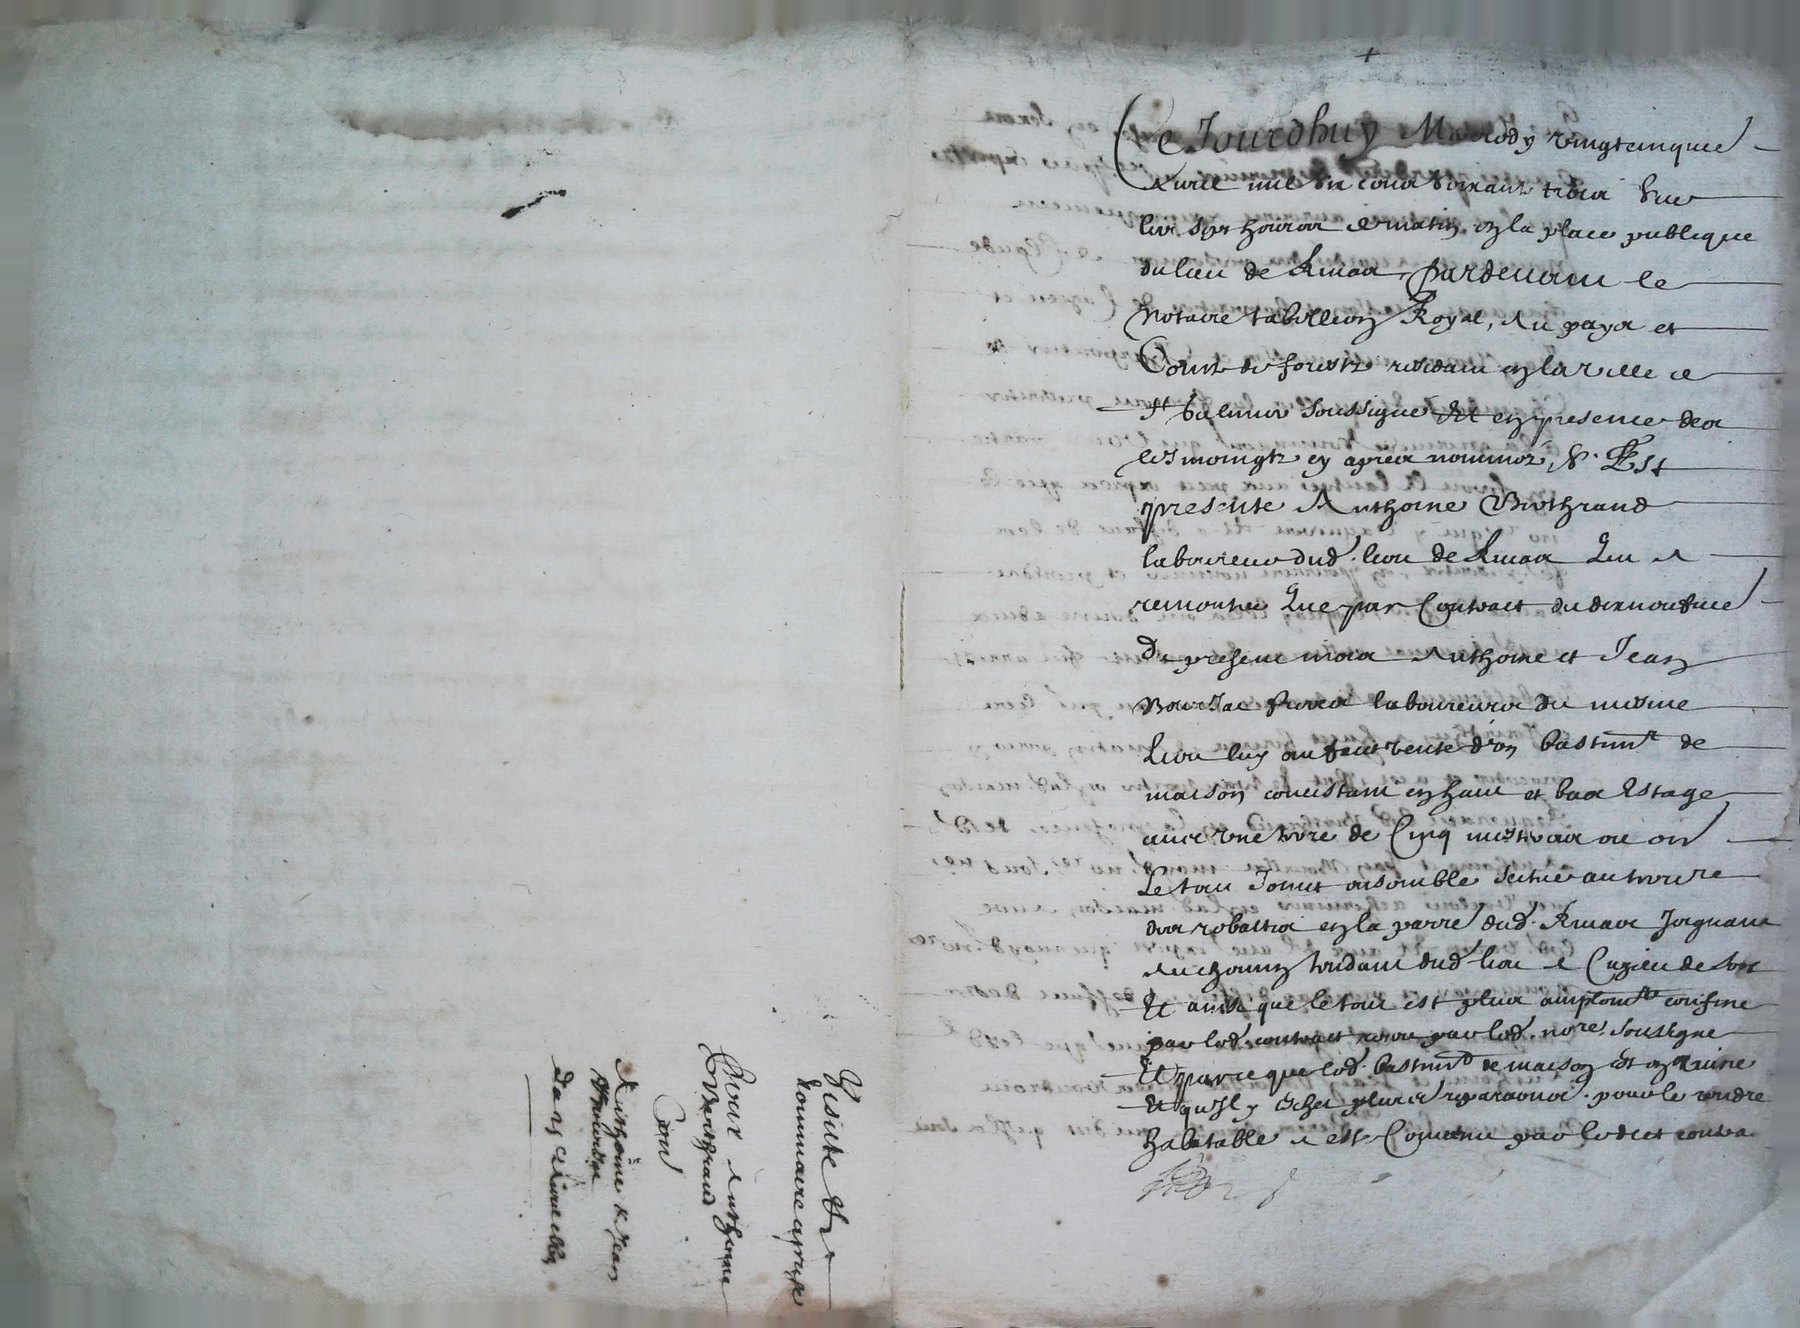 Ce Jourdhuy Mardy vingtcinquie
Avril mil six cens soixante trois sur
les sept heures de matin en la place publique
du lieu de Rivas, pardevant le
Notaire tabellion Royal, au pays et
Comté de forestz residant en la ville de
St Galmier soussigné et en presence des
tesmoingtz cy apres nommez, S'Est
presenté Anthoine Berthrand
laboureur dud. lieu de Rivas Qui a
remontré Que par Contract du
du present mois Anthoine et Jean
freres laboureurs du mesme
Lieu luy ont fait vente d'un bastimt de
maison concistant en haut et bas Estage
avec une terre de Cinq ou on
Le tout Joinct ensemble scitué au
en la parre dud. Rivas Joignant
Au chemin tendant dud. lieu a Cuzieu de
Et ainsi que le tout est plus amplemt confiné
par led. contract receu par led. nore soussigné
Et parce que led. bastimt de maison est en Ruine
Et qu'Il y eschet plusrs reparaons pour le rendre
habitable a esté Convenu par ledict contra
Visitte &
sommaire aprise
Pour Anthoine
Berthrand
Con
Anthoine & Jean